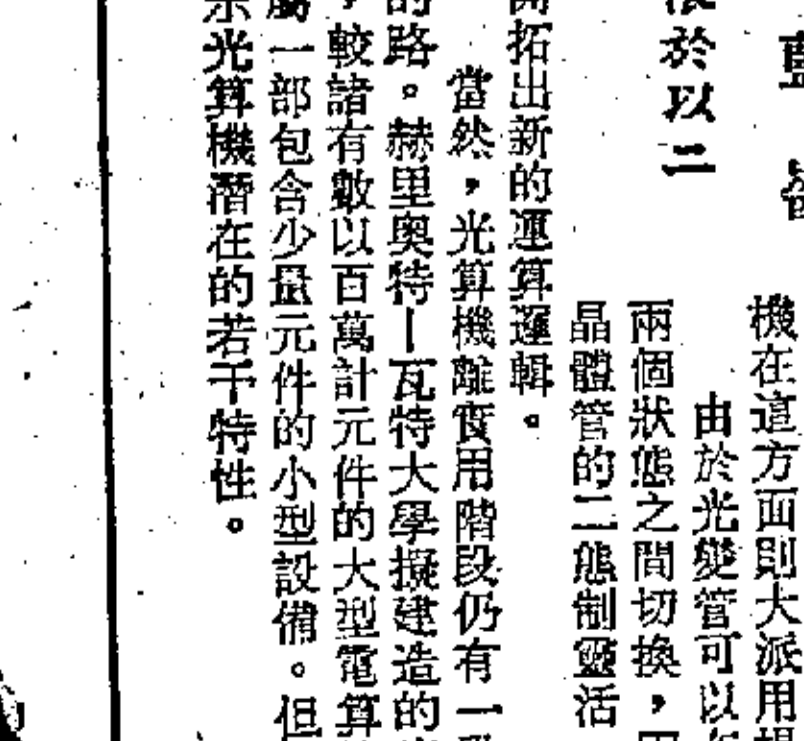 機在這方面則大派用場
由於光變管可以在
兩個狀態之間切換，因
晶體管的二態制靈活
於以二
開拓出新的運算邏輯。
當然，光算機離實用階段仍有一段
的路。赫里奧特—瓦特大學擬建造的
，較諸有數以百萬計元件的大型電算
屬一部包含少量元件的小型設備。但
示光算機潛在的若干特性。